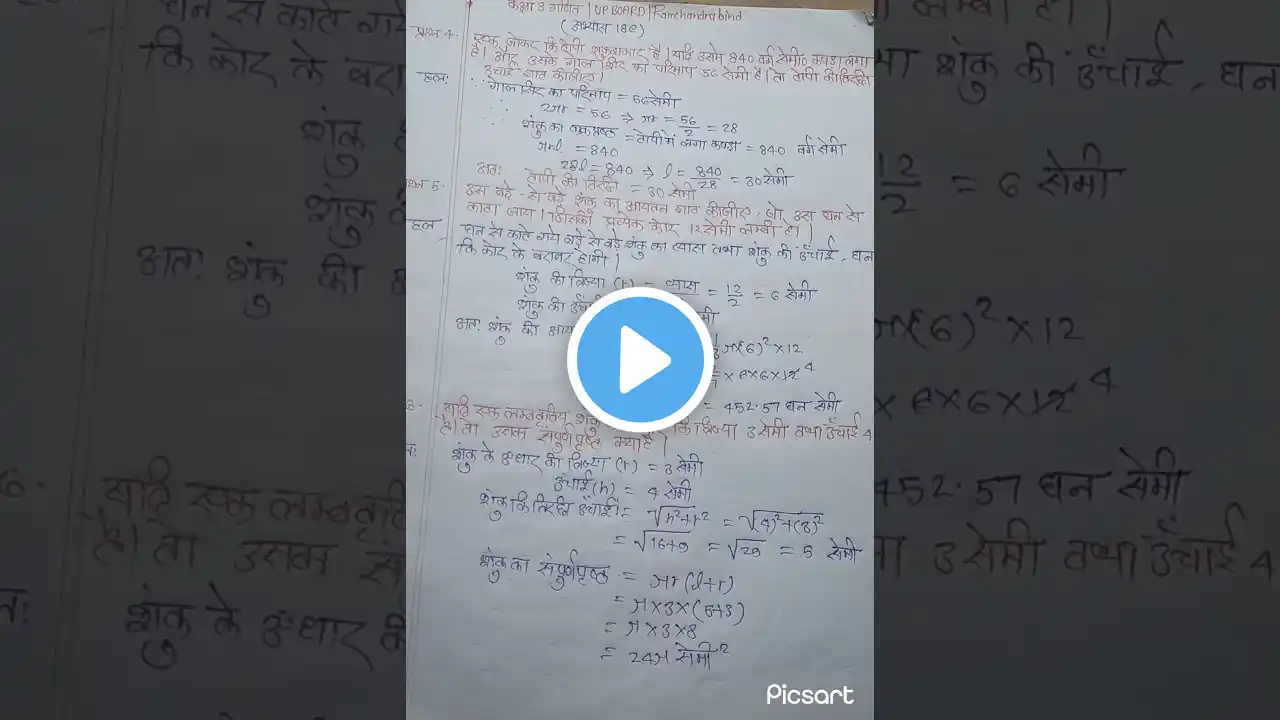 कक्षा 8 गणित | UP BOARD | Ramchandra bind
(अभ्यास 18e)
प्रश्न 4. एक जोकर कि टोपी शंक्वाकार है। यदि उसमे 840 वर्ग सेमी० कपड़ा लगा
है। और उसके गोल सिर का परिमाप 56 सेमी है। तो टोपी की तिरछी
ऊंचाई ज्ञात कीजिए।
हल: ∵ गोल सिर का परिमाप = 56 सेमी
∴ 2πr = 56 ⇒ πr = 56/2 = 28
∵ शंकु का वक्रपृष्ठ = टोपी में लगा कपड़ा = 840 वर्ग सेमी
πrl = 840
28l = 840 ⇒ l = 840/28 = 30 सेमी
अत: टोपी की तिरछी = 30 सेमी
प्रश्न 5. उस बड़े-से बड़े शंकु का आयतन ज्ञात कीजिए, जो उस घन से
काटा जाय। जिसकी प्रत्येक कोर 12 सेमी लम्बी हो।
हल घन से काटे गये बड़े से बड़े शंकु का व्यास तथा शंकु की ऊँचाई, घन
कि कोर के बराबर होगी।
शंकु की त्रिज्या (r) = व्यास = 12/2 = 6 सेमी
शंकु की ऊँचाई सेमी
अत: शंकु की आय π×(6)²×12
× 6×6×12 4
= 452.57 घन सेमी
6. यदि एक लम्बवृत्तीय शंकु कि त्रिज्या 3 सेमी तथा ऊँचाई 4
है। तो उसका संपूर्णपृष्ठ क्या है।
शंकु के आधार की त्रिज्या (r) = 3 सेमी
ऊंचाई (h) = 4 सेमी
शंकु कि तिरछी ऊँचाई = √h²+r² = √(4)²+(3)²
= √16+9 = √25 = 5 सेमी
शंकु का संपूर्णपृष्ठ = πr(l+r)
= π×3×(5+3)
= π×3×8
= 24π सेमी²
Picsart